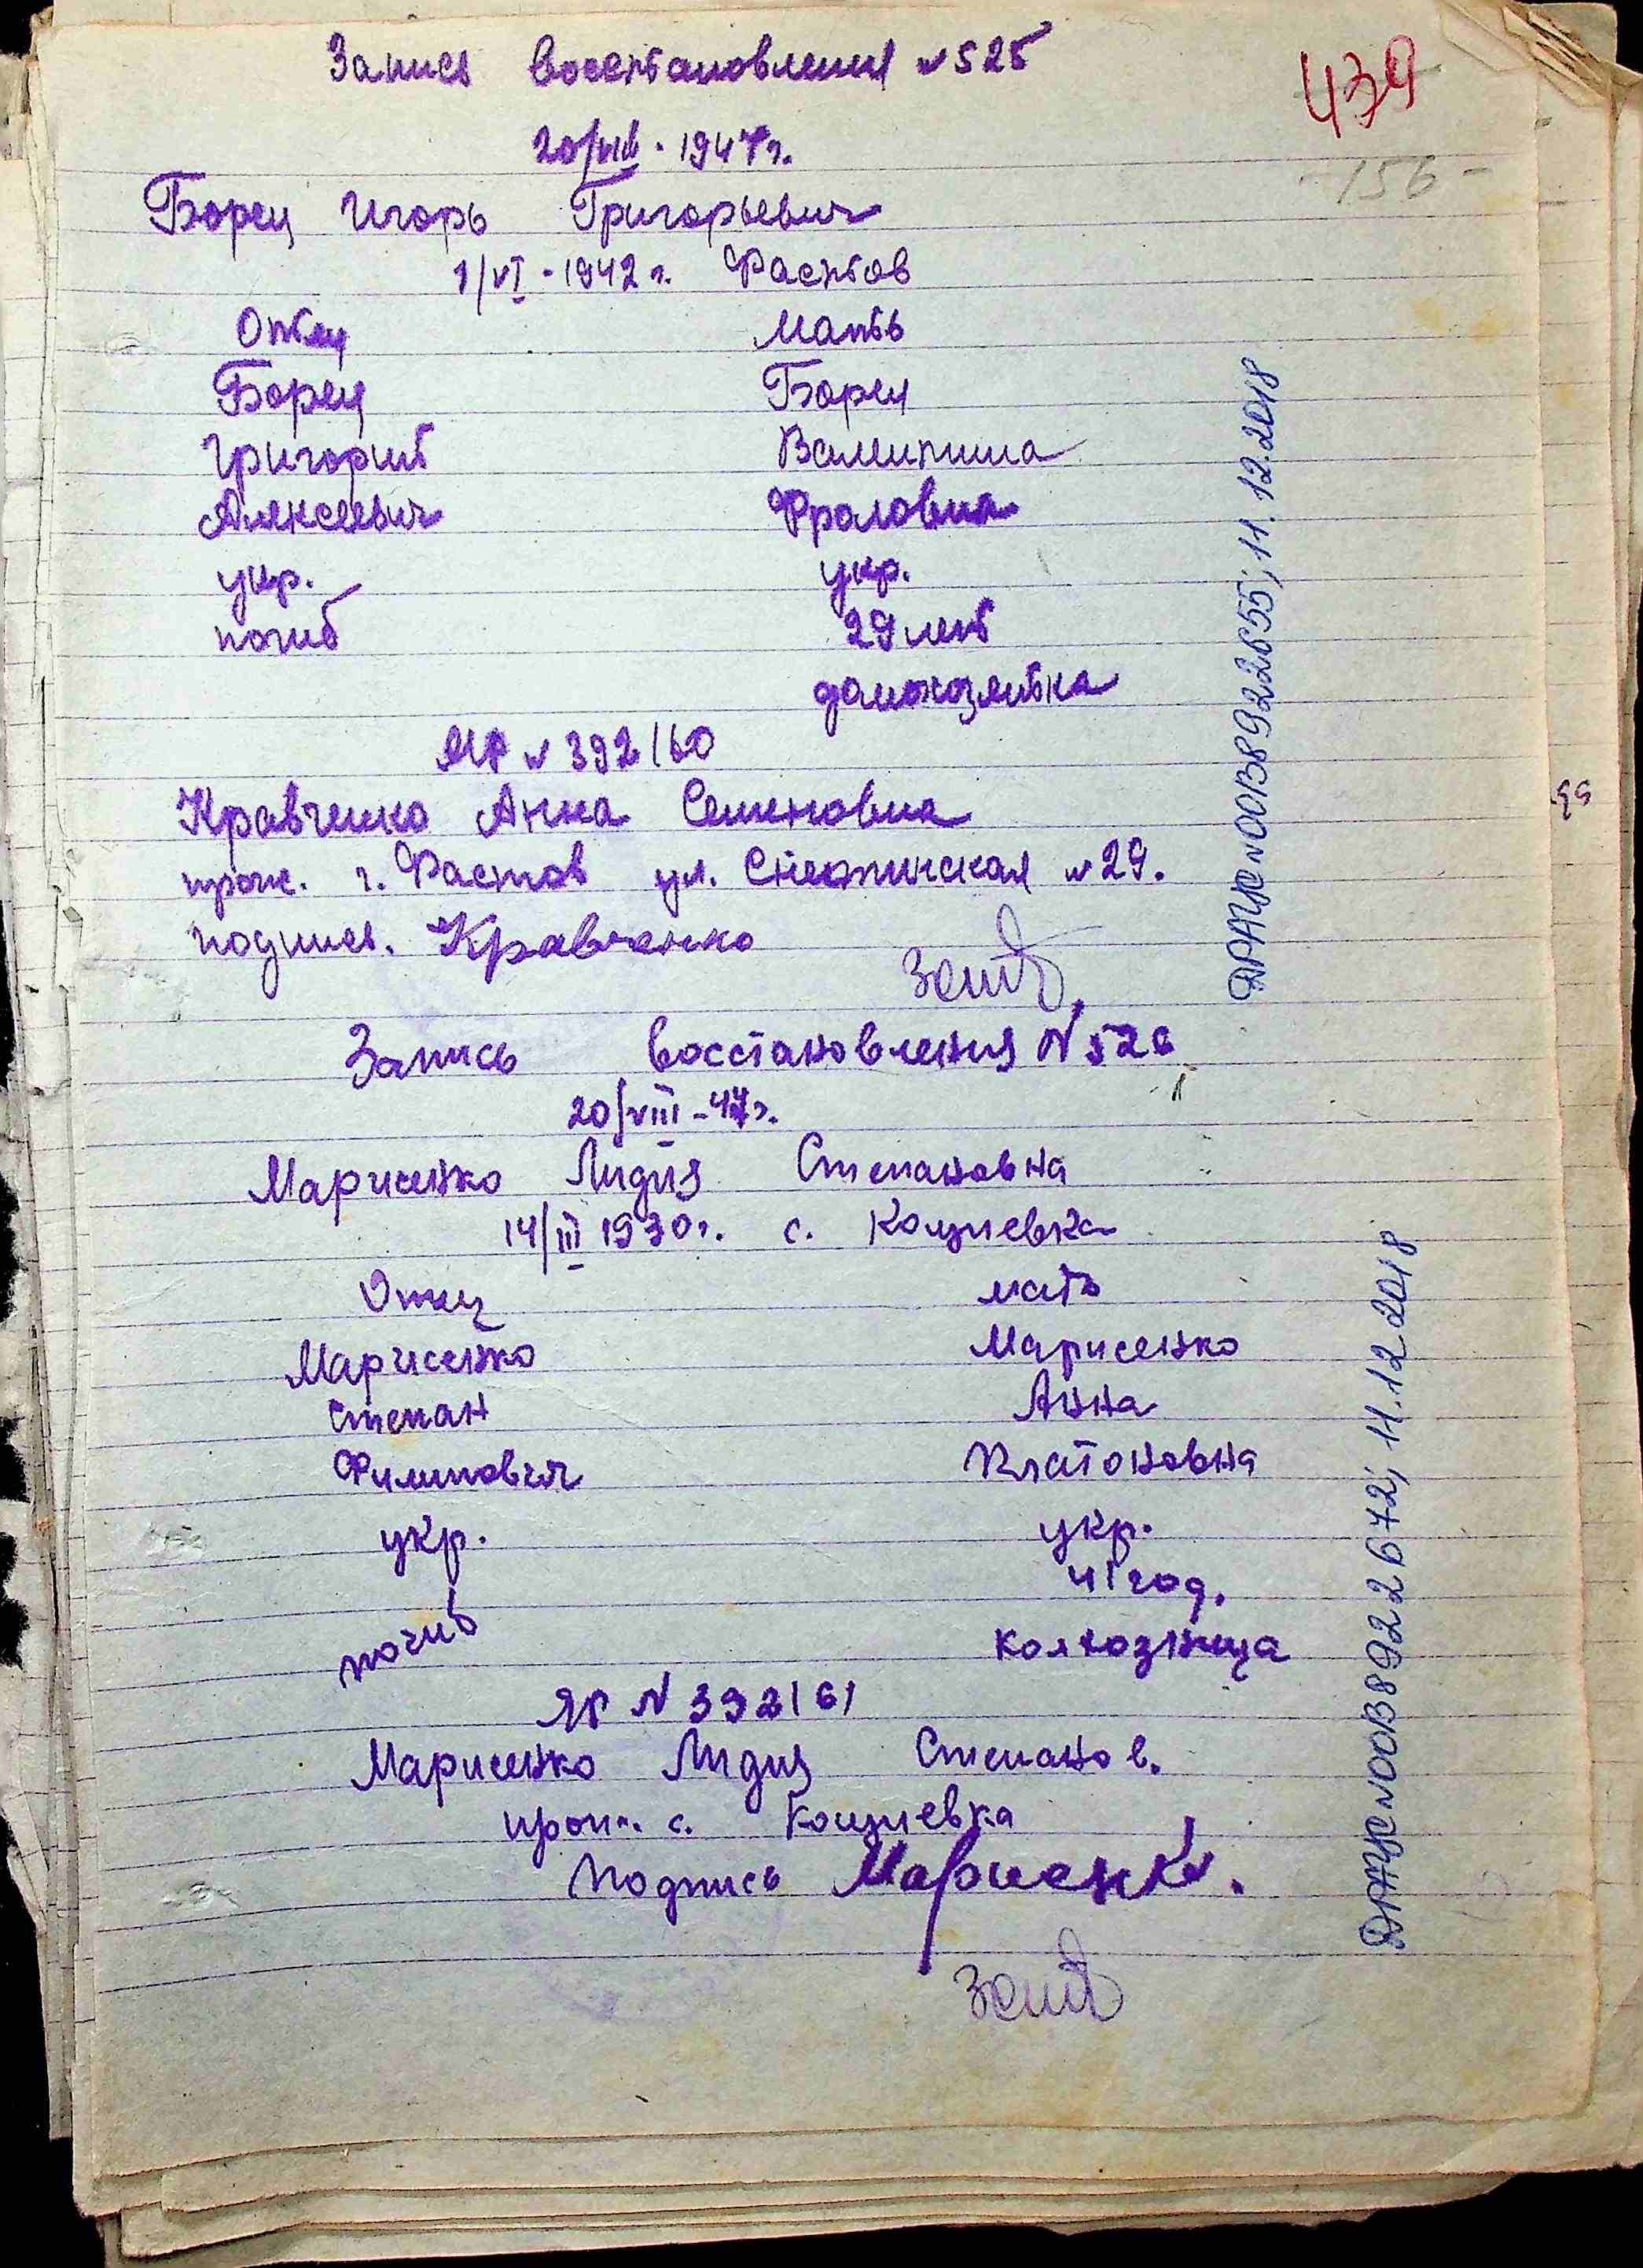 439
-156-
Запись восстановления №525
20/VIII·1947г.
Борец Игорь Григорьевич
1/VI·1942г. Фастов
Отец Мать
Борец Борец
Григорий Валентина
Алексеевич Фроловна
укр. укр.
погиб 29 лет
домохозяйка
ЯР № 392160
Кравченко Анна Семеновна
прож. г. Фастов ул. №29.
подпись. Кравченко
Запись восстановления №526
20/VIII-47г.
Марисенко Лидия Степановна
14/III 1930г. с. Кощиевка
Отец мать
Марисенко Марисенко
Степан Анна
Филипович Платоновна
укр. укр.
41 год.
погиб колхозница
ЯР № 392161
Марисенко Лидия Степанов.
прож. с. Кощиевка
подпись Марисенко.
ДРАЦС №00138922655; 11.12.2018
ДРАЦС №00138922672; 11.12.2018